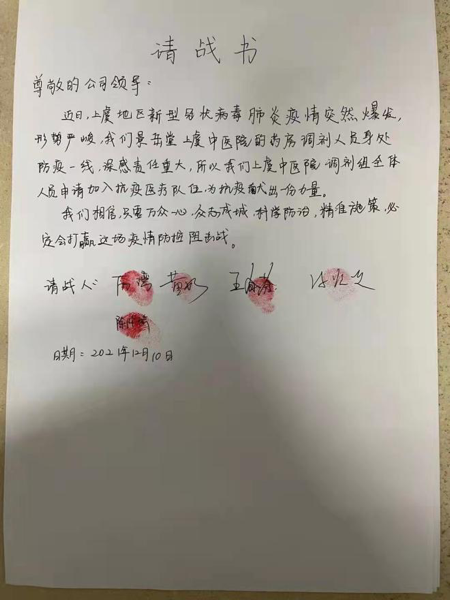 请战书
尊敬的公司领导：
近日，上虞地区新型冠状病毒肺炎疫情突然爆发，
形势严峻，我们景岳堂上虞中医院的药房调剂人员身处
防疫一线，深感责任重大，所以我们上虞中医院调剂组全体
人员申请加入抗疫医疗队伍，为抗疫献出一份力量。
我们相信，只要万众一心，众志成城，科学防治，精准施策，必
定会打赢这场疫情防控阻击战。
请战人：
日期：2021年12月10日